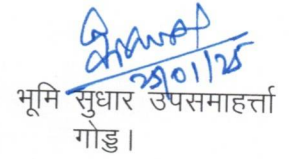 29/01/25
भूमि सुधार उपसमाहर्त्ता
गोड्डा।